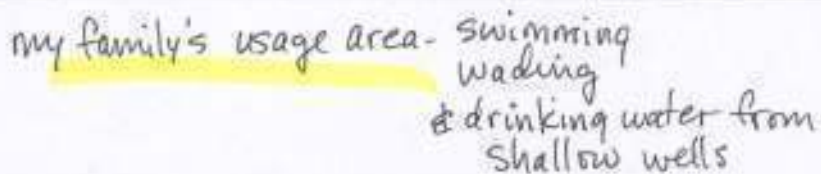 my family's usage area- swimming
wading
& drinking water from
shallow wells